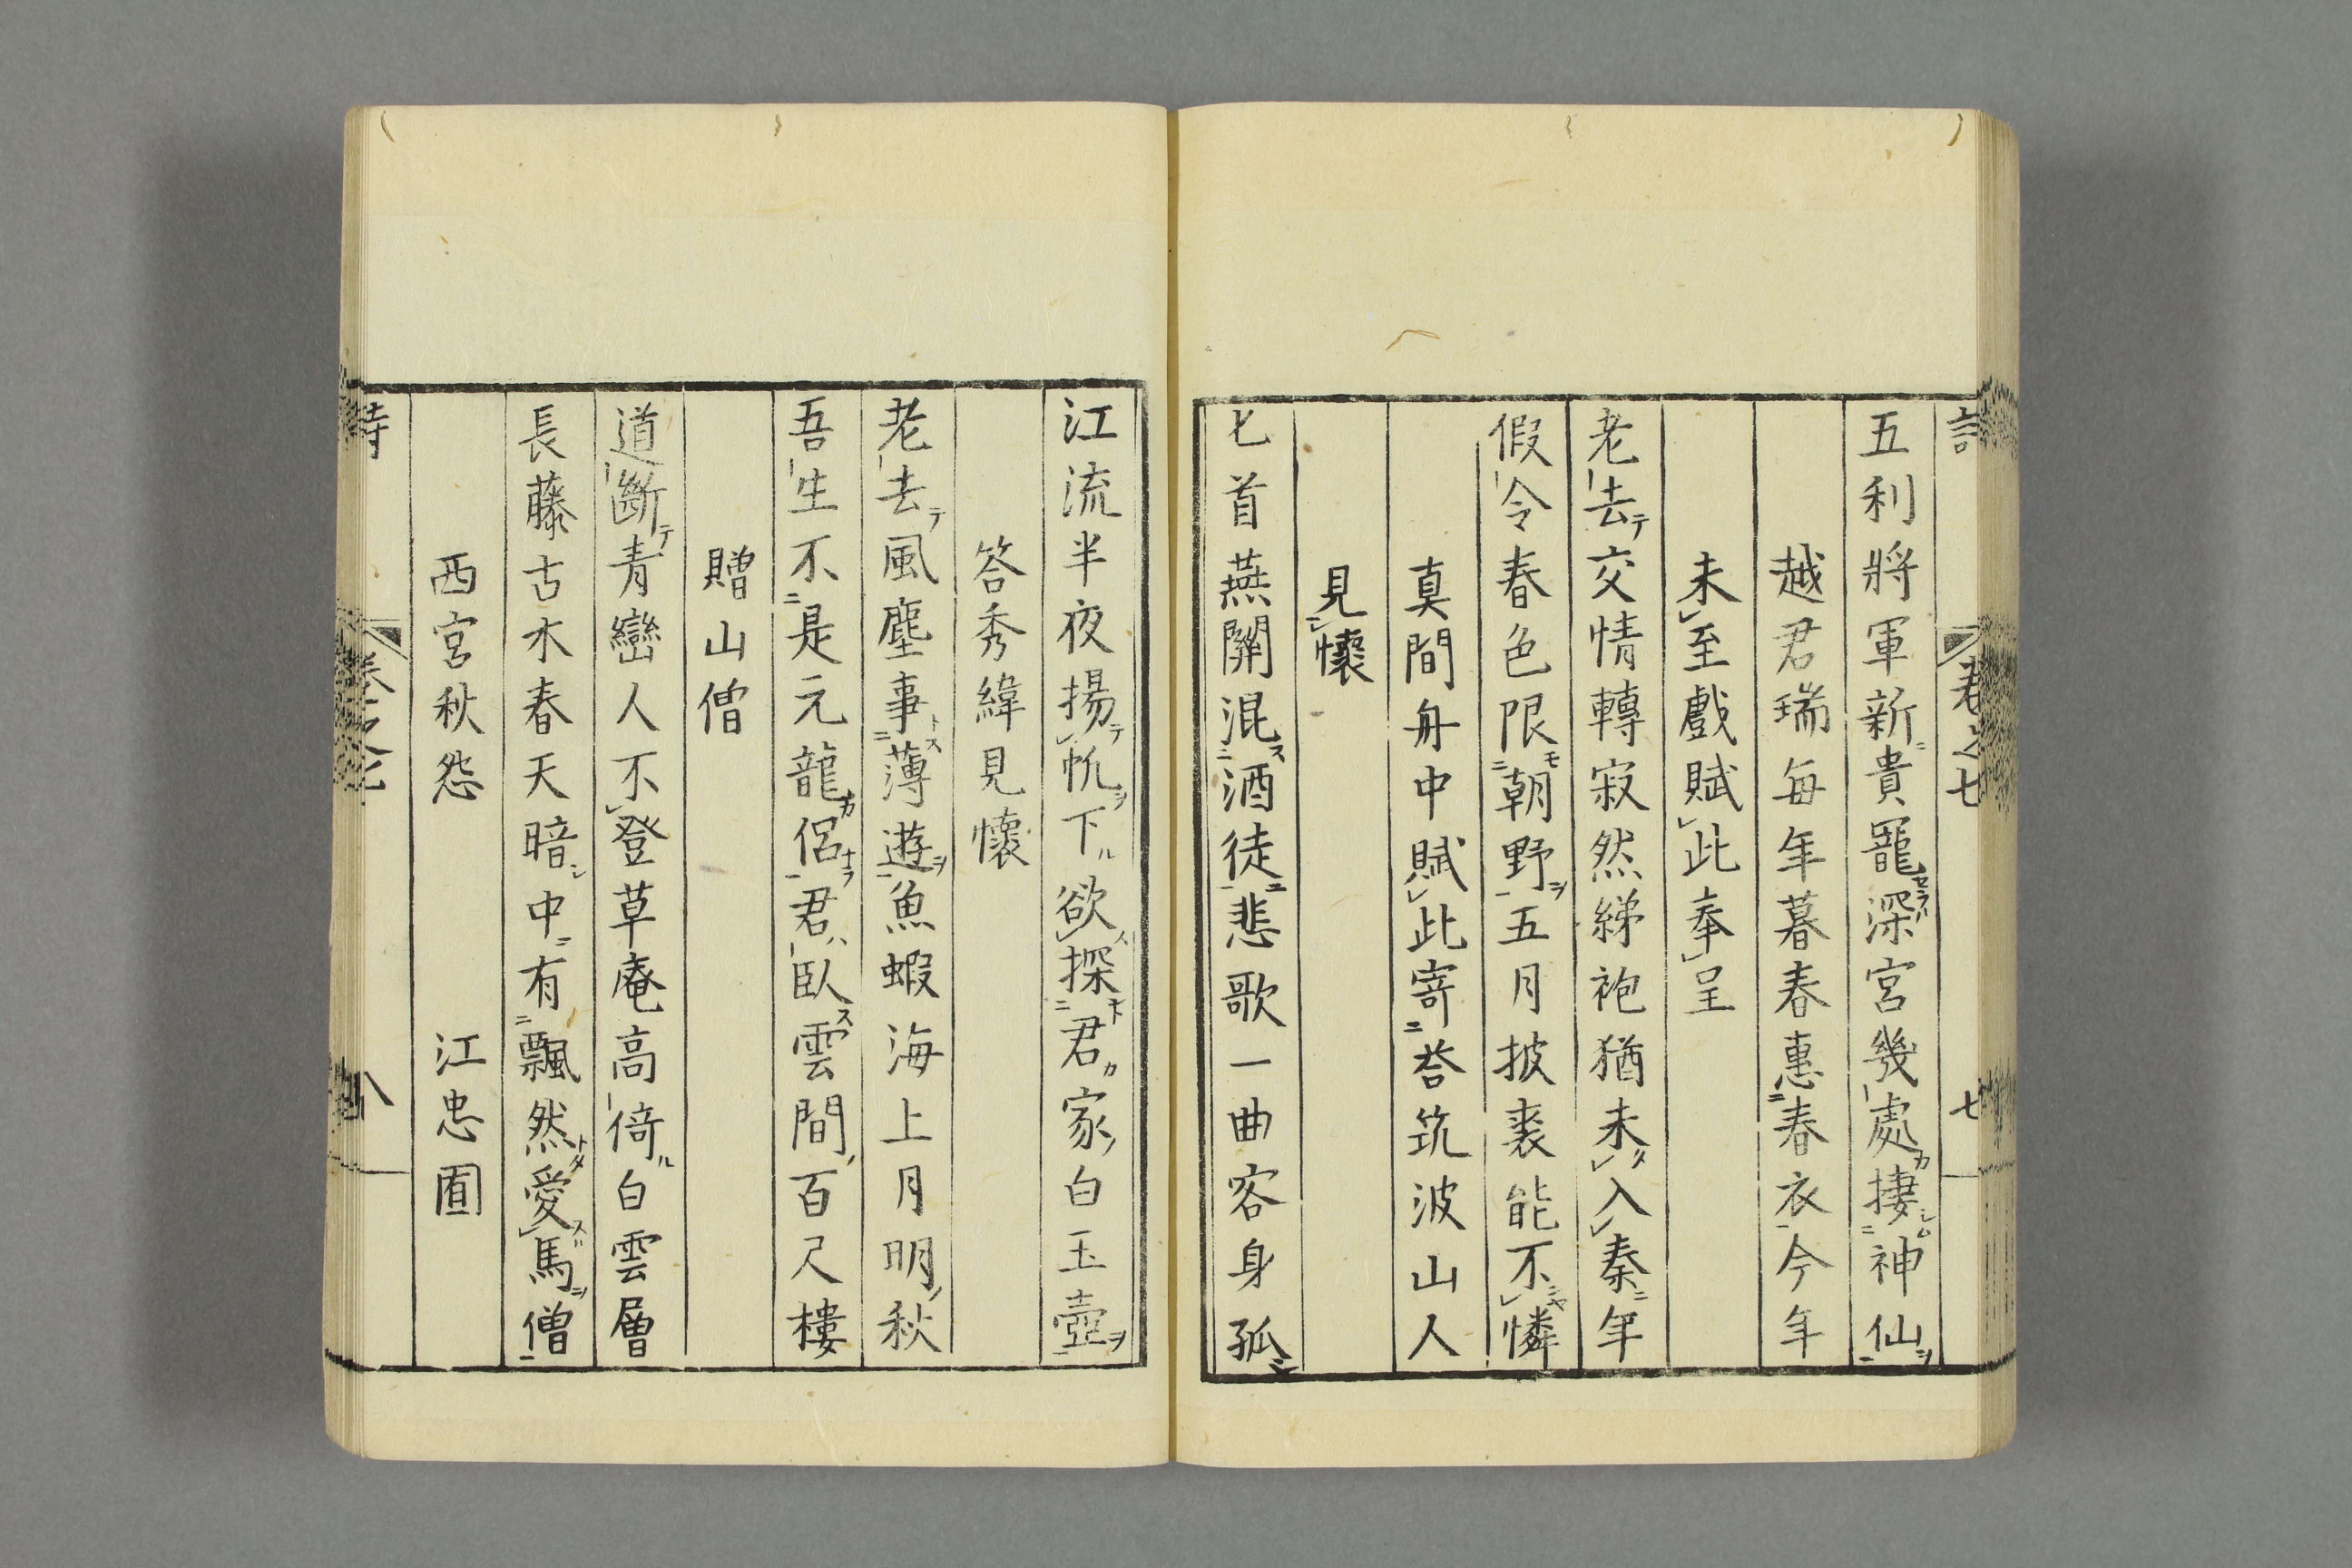 五利將軍新貴寵深宮幾處捿神仙
越君瑞每年暮春惠春衣今年
未至戲賦此奉呈
老去交情轉寂然綈袍猶未入秦年
假令春色限朝野五月披裘能不憐
真間舟中賦此寄荅筑波山人
見懷
匕首燕關混酒徒悲歌一曲客身孤
卷之七
七
江流半夜揚帆下欲探君家白玉壺
答秀緯見懷
老去風塵事薄遊魚蝦海上月明秋
吾生不是元龍侶君臥雲間百尺樓
贈山僧
道斷青巒人不登草庵高倚白雲層
長藤古木春天暗中有飄然愛馬僧
西宮秋怨 江忠囿
八